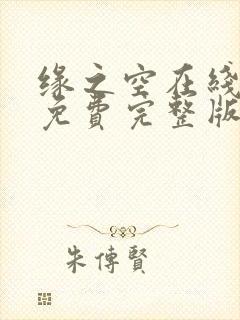 缘之空在线
免費完整版
朱傳賢